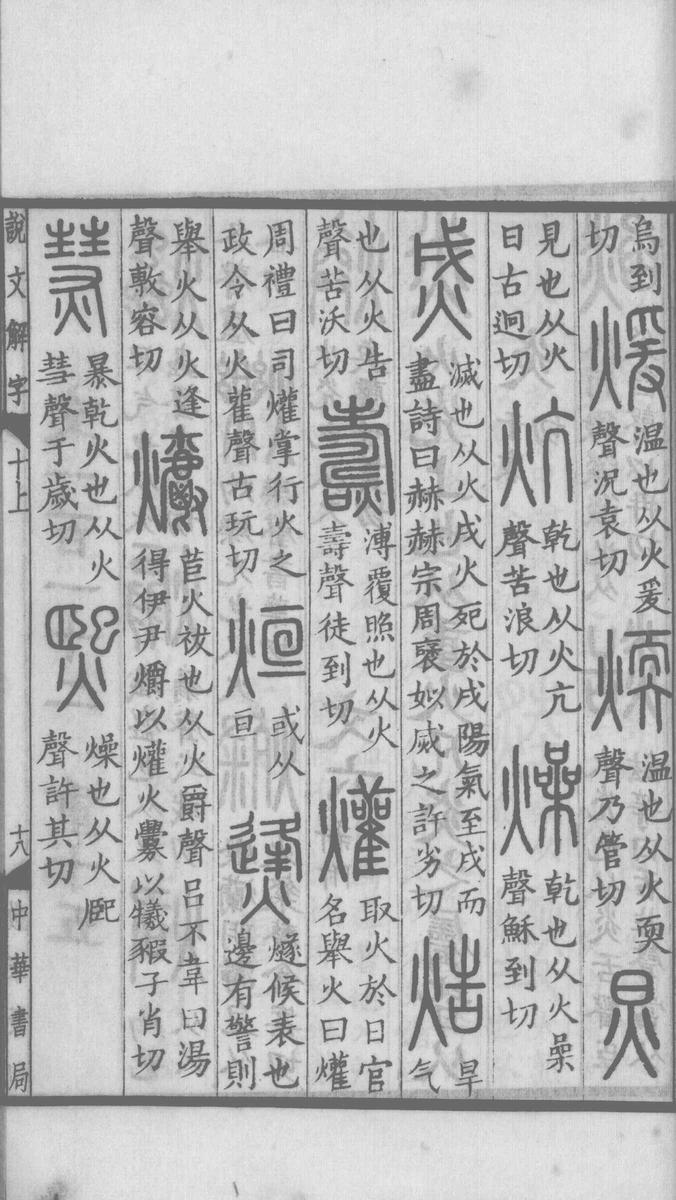 烏到切煖温也从火爰聲況袁切煗温也从火耎聲乃管切炅
見也从火日古迥切炕乾也从火亢聲苦浪切燥乾也从火喿聲穌到切
烕滅也从火戌火死於戌陽氣至戌而盡詩曰赫赫宗周襃姒烕之許劣切焅旱气
也从火告聲苦沃切燾溥覆照也从火壽聲徒到切爟取火於日官名舉火曰爟
周禮曰司爟掌行火之政令从火雚聲古玩切烜或从亘㷭燧候表也邊有警則
舉火从火逢聲敷容切爝苣火祓也从火爵聲呂不韋曰湯得伊尹爝以爟火釁以犧豭子肖切
熭暴乾火也从火彗聲于歲切熙燥也从火巸聲許其切
說文解字 十上 十八 中華書局